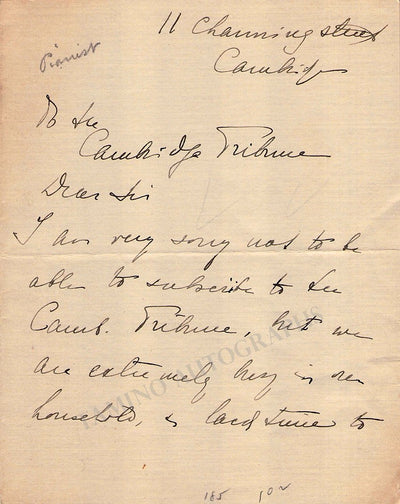 11 Channing street
Cambridge
Pianist
To the
Cambridge Tribune
Dear Sir
I am very sorry not to be
able to subscribe to the
Camb. Tribune, but we
are extremely busy in our
household, & lack time to
TAMINO AUTOGRAPHS
185